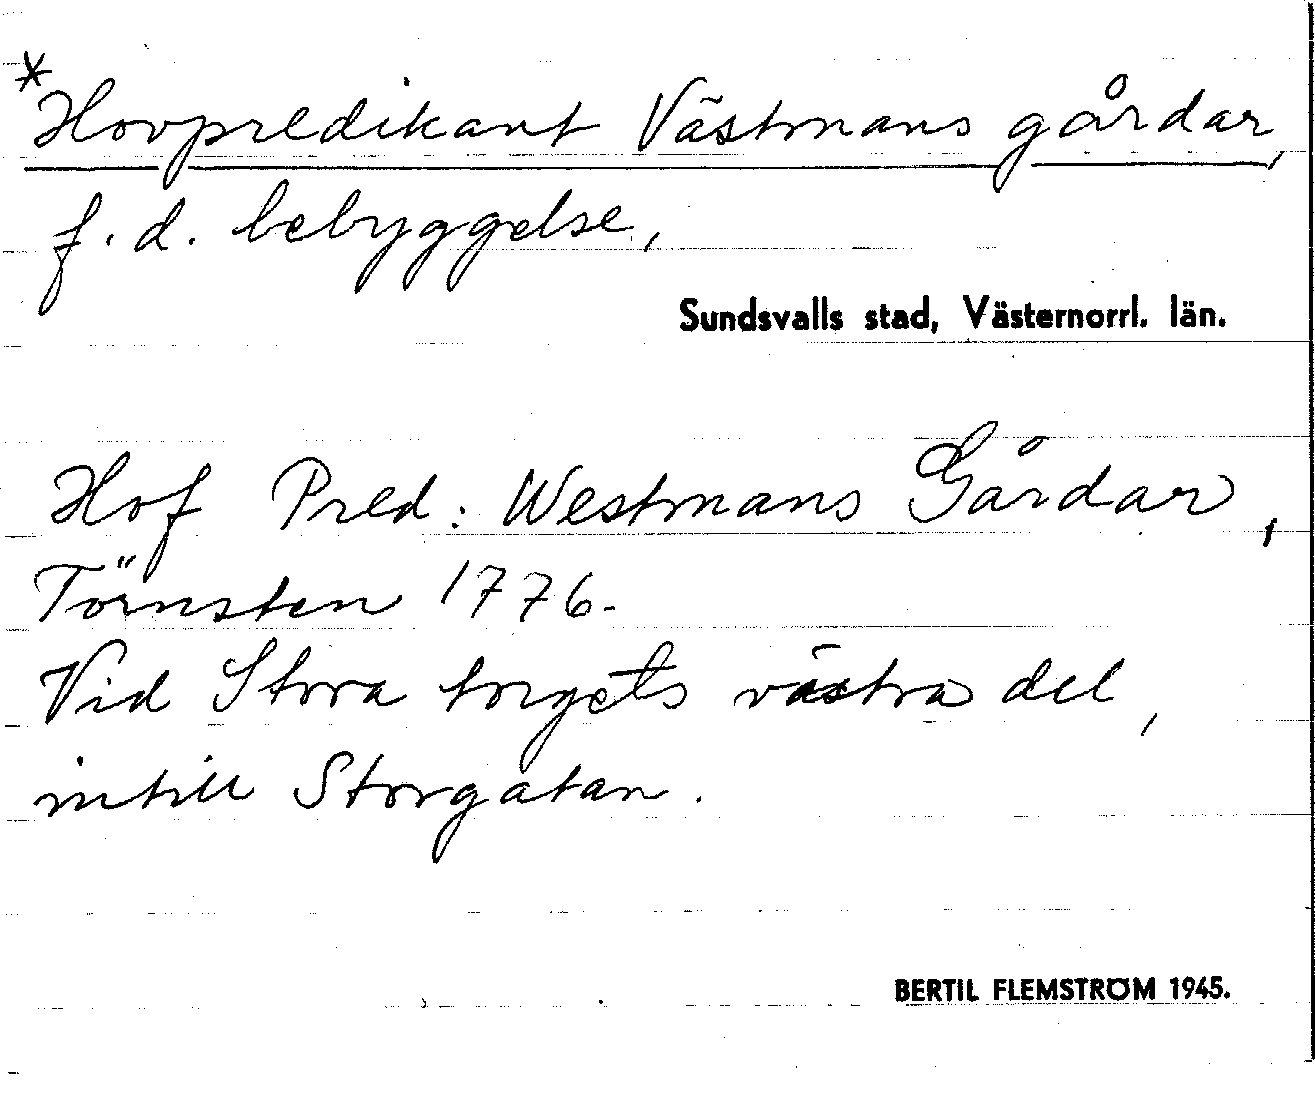 *Hovpredikant Västmans gårdar,
f.d. bebyggelse,
Sundsvalls stad, Västernorrl. län.
Hof Pred: Westmans Gårdar,
Törnsten 1776.
Vid Stora torgets västra del,
intill Storgatan.
BERTIL FLEMSTRÖM 1945.